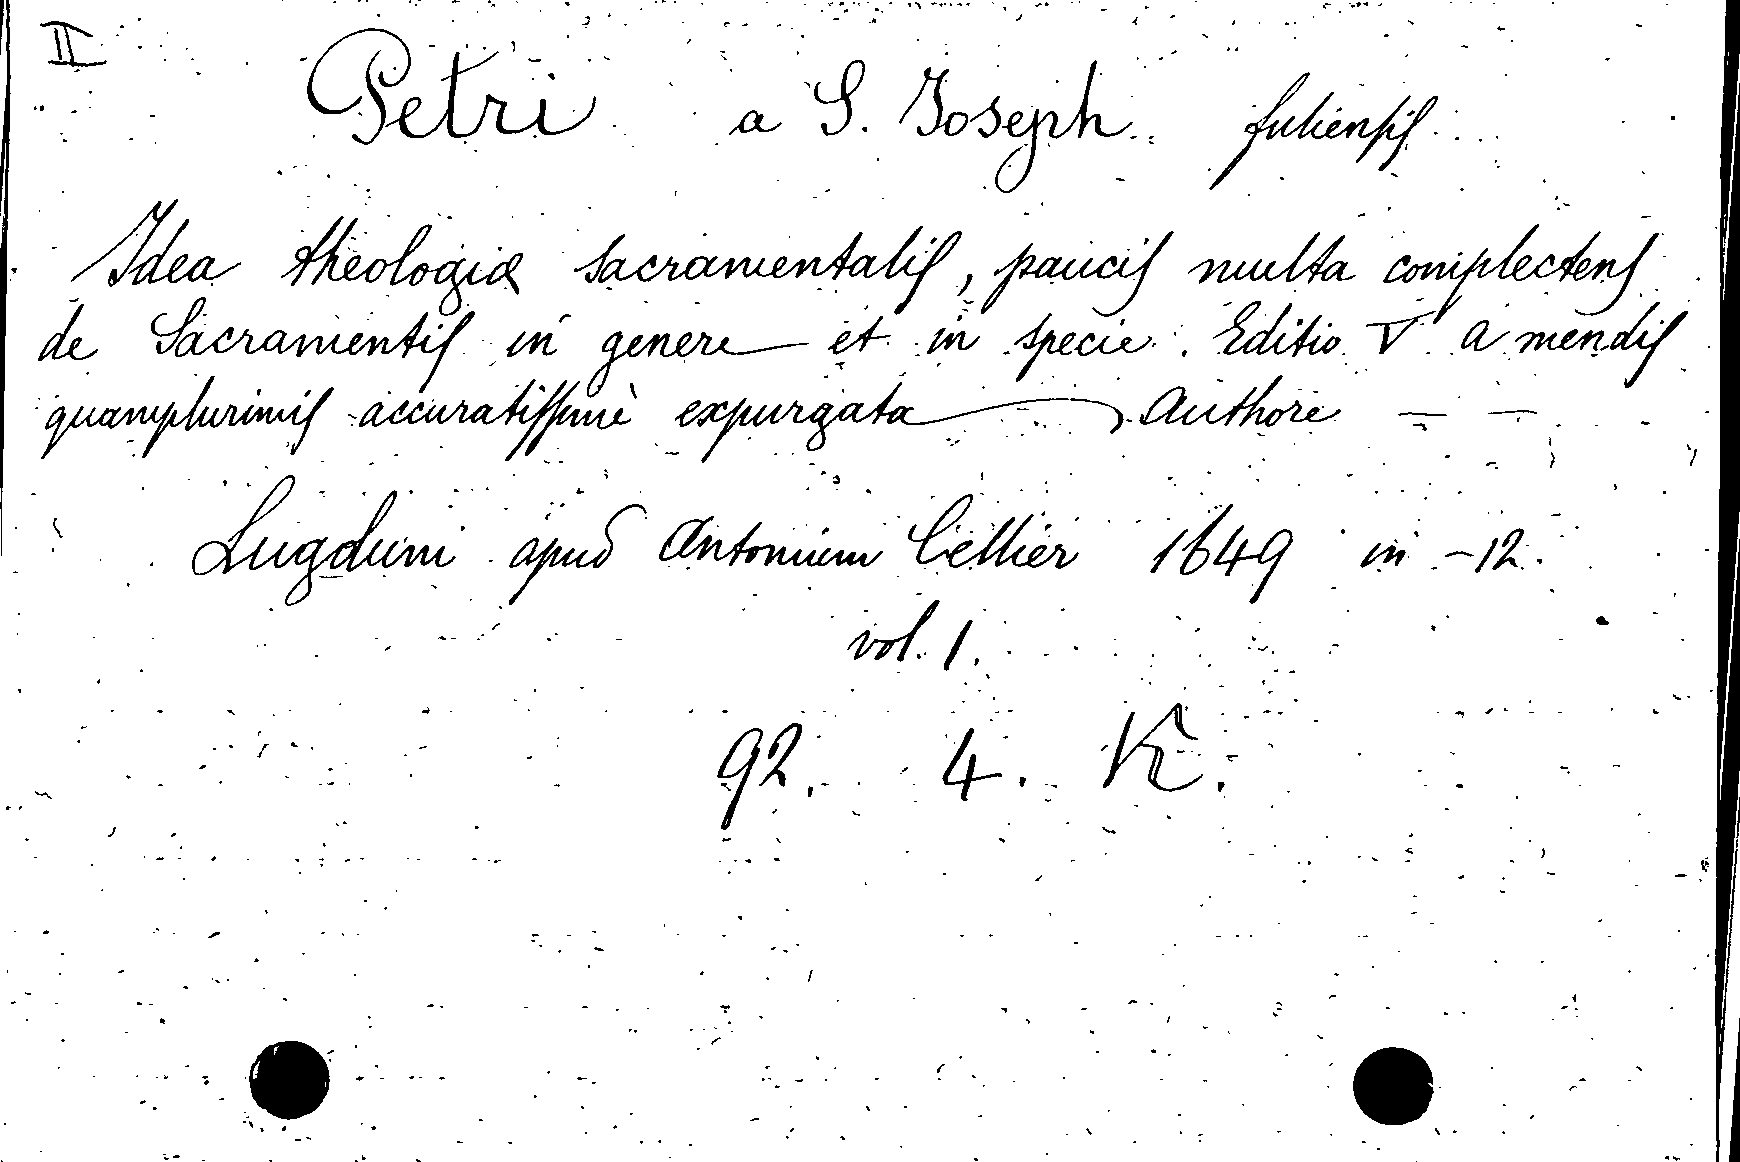 II
Petri a S. Joseph fuliensis
Idea theologiæ sacramentalis, paucis multa complectens
de Sacramentis in genere et in specie. Editio V a mendis
quamplurimis accuratissimè expurgata Authore — —
Lugduni apud Antonium Cellier 1649 in -12.
vol. 1.
92. 4. K.